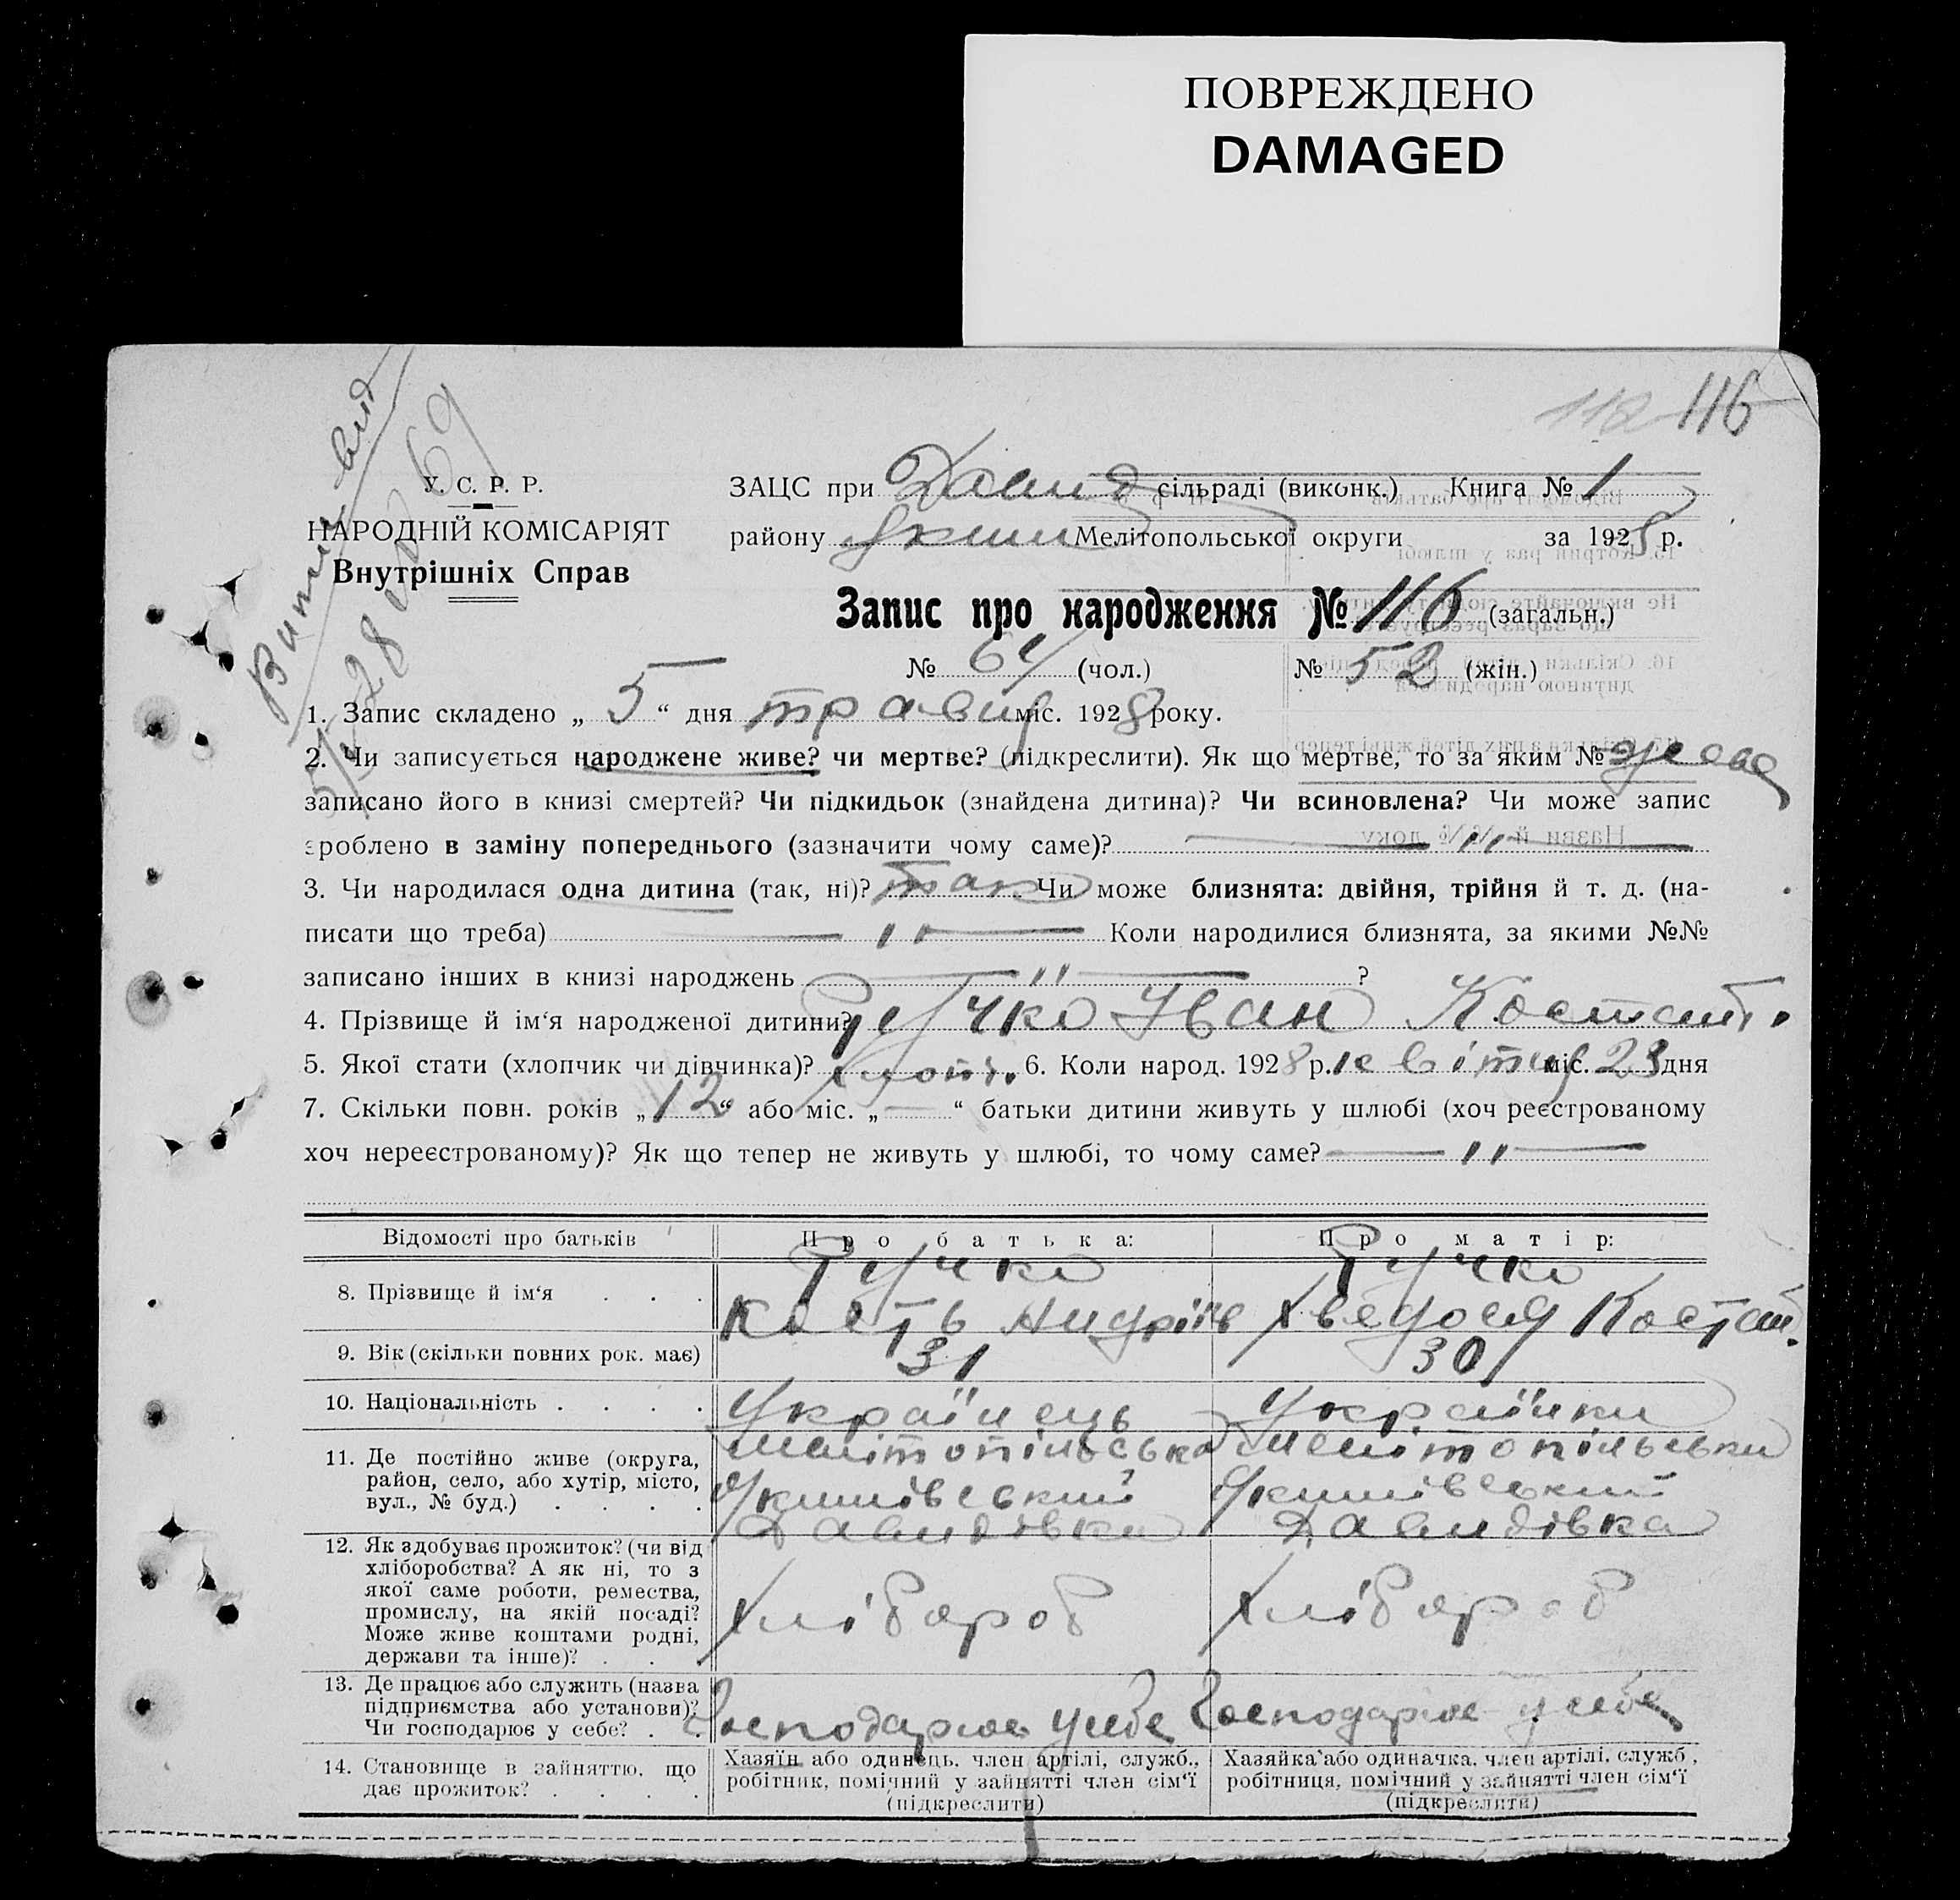 ПОВРЕЖДЕНО
DAMAGED
116
Витяг вид
У. С. Р. Р.
НАРОДНІЙ КОМІСАРІЯТ
Внутрішніх Справ
ЗАЦС при Давид сільраді (виконк.) Книга № 1
району Яким Мелітопольської округи за 1928 р.
Запис про народження № 116 (загальн.)
№ 64 (чол.) № 52 (жін.)
1. Запис складено „ 5 “ дня травня міс. 1928 року.
2. Чи записується народжене живе? чи мертве? (підкреслити). Як що мертве, то за яким № живе
записано його в книзі смертей? Чи підкидьок (знайдена дитина)? Чи всиновлена? Чи може запис
зроблено в заміну попереднього (зазначити чому саме)? — " —
3. Чи народилася одна дитина (так, ні)? так Чи може близнята: двійня, трійня й т. д. (на-
писати що треба) — " — Коли народилися близнята, за якими №№
записано інших в книзі народжень — " — ?
4. Прізвище й ім‘я народженої дитини? Ручко Іван Костант.
5. Якої стати (хлопчик чи дівчинка)? хлопч. 6. Коли народ. 1928 р. квітня міс. 23 дня
7. Скільки повн. років „ 12 “ або міс. „ — “ батьки дитини живуть у шлюбі (хоч реєстрованому
хоч нереєстрованому)? Як що тепер не живуть у шлюбі, то чому саме? — " —
Відомості про батьків Про батька: Про матір:
8. Прізвище й ім‘я . . . Ручко Ручко
Кость Андріїв Хведося Костант.
9. Вік (скільки повних рок. має) 31 30
10. Національність . . . . Українець Українка
11. Де постійно живе (округа, Мелітопільська Мелітопільська
район, село, або хутір, місто, Якимівський Якимівський
вул., № буд.) . . . . Давидівка Давидівка
12. Як здобуває прожиток? (чи від
хліборобства? А як ні, то з
якої саме роботи, ремества,
промислу, на якій посаді? Хлібороб Хлібороб
Може живе коштами родні,
держави та інше)? . . .
13. Де працює або служить (назва
підприємства або установи)? Господарює у себе Господарює у себе
Чи господарює у себе? . .
14. Становище в зайняттю, що Хазяїн або одинець, член артілі, служб., Хазяйка або одиначка, член артілі, служб.,
дає прожиток? . . . . робітник, помічний у зайнятті член сім‘ї робітниця, помічний у зайнятті член сім‘ї
(підкреслити) (підкреслити)